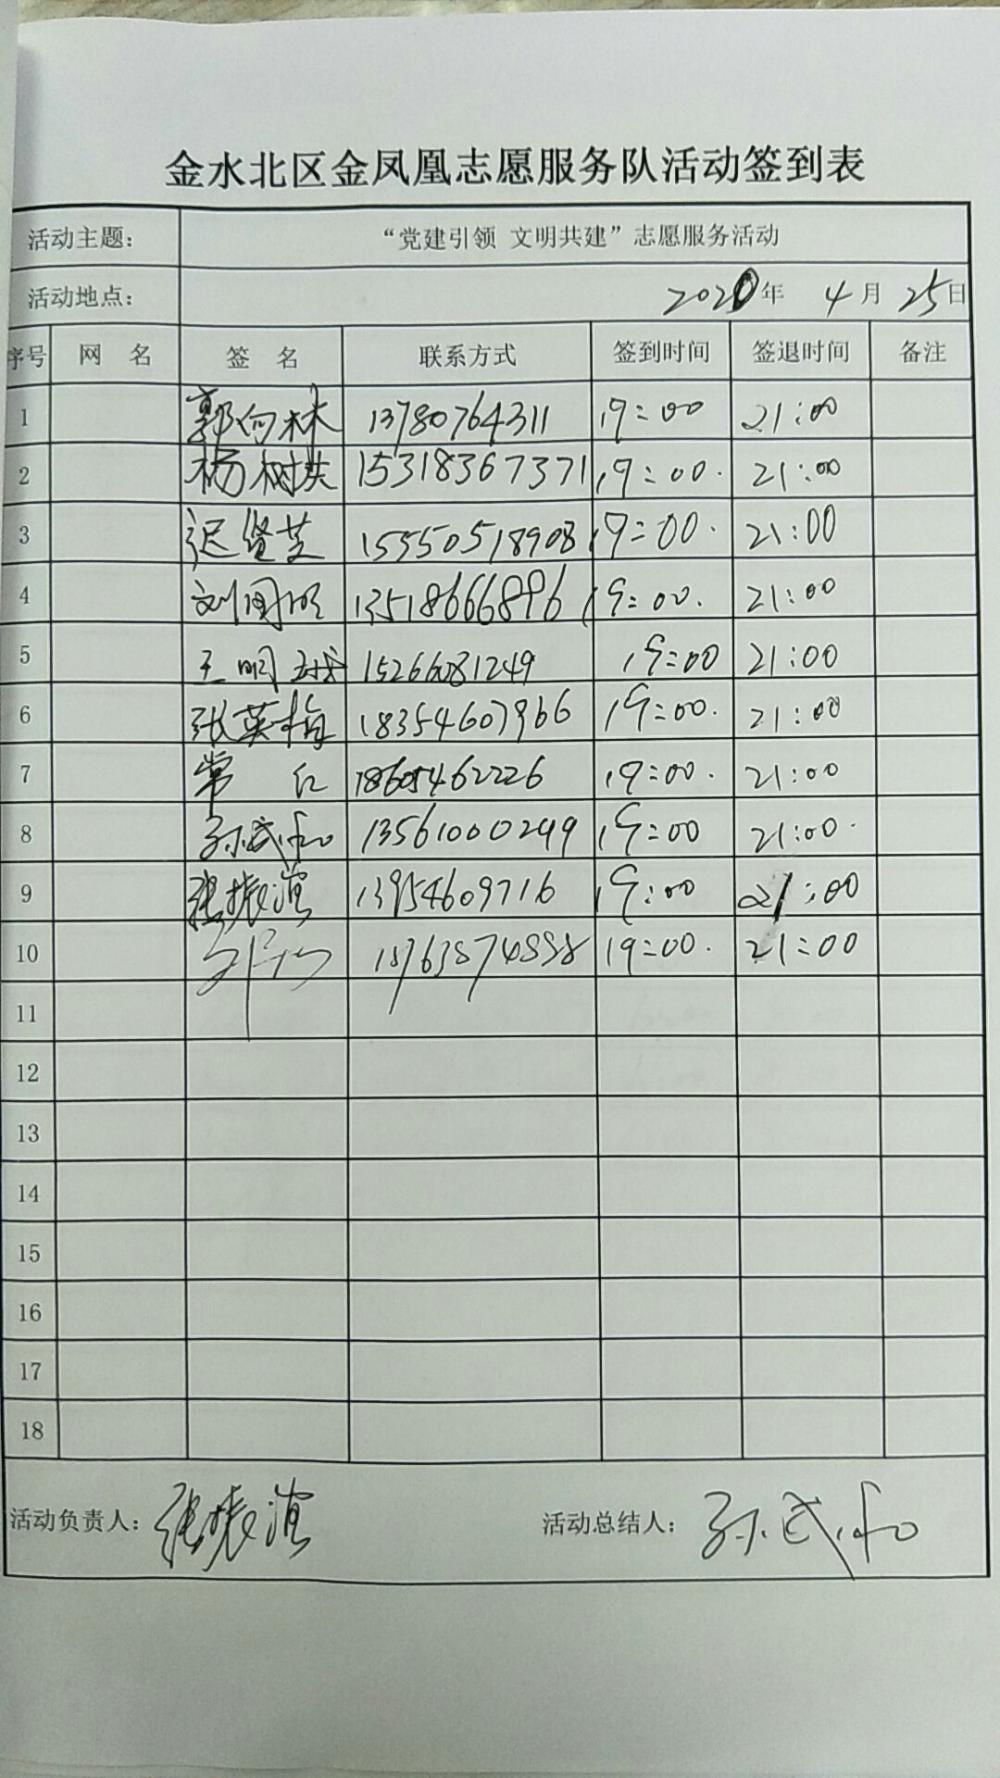 金水北区金凤凰志愿服务队活动签到表
活动主题： “党建引领 文明共建”志愿服务活动
活动地点： 2020年 4月 25日
序号 网 名 签 名 联系方式 签到时间 签退时间 备注
1 郭向林 13780764311 19:00 21:00
2 杨树 15318367371 19:00. 21:00
3 迟贤芝 15550518908 19:00. 21:00
4 刘国明 13518666896 19:00. 21:00
5 王明 15266081249 19:00 21:00
6 张英梅 18354607966 19:00. 21:00
7 常 红 18605462226 19:00. 21:00
8 孙武和 13561000299 19:00 21:00.
9 张振滨 13954609716 19:00 21:00
10 19:00. 21:00
11
12
13
14
15
16
17
18
活动负责人： 张振滨 活动总结人： 孙武和